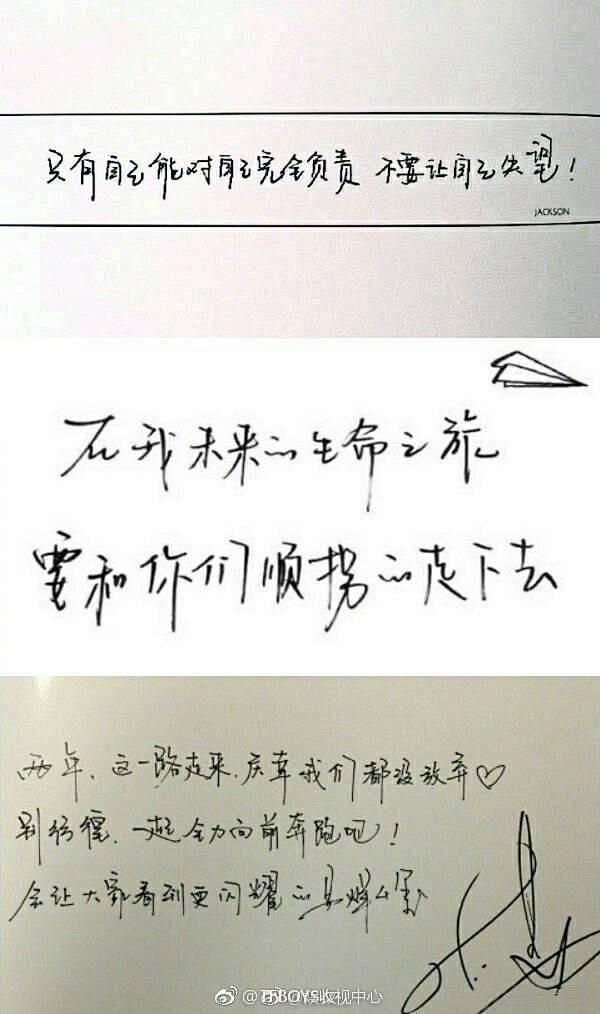 只有自己能对自己完全负责 不要让自己失望!
JACKSON
在我未来的生命之旅
要和你们顺拐的走下去
两年、这一路走来,庆幸我们都没放弃♡
别彷徨、一起全力向前奔跑吧!
会让大家看到更闪耀的易烊千玺
收视中心